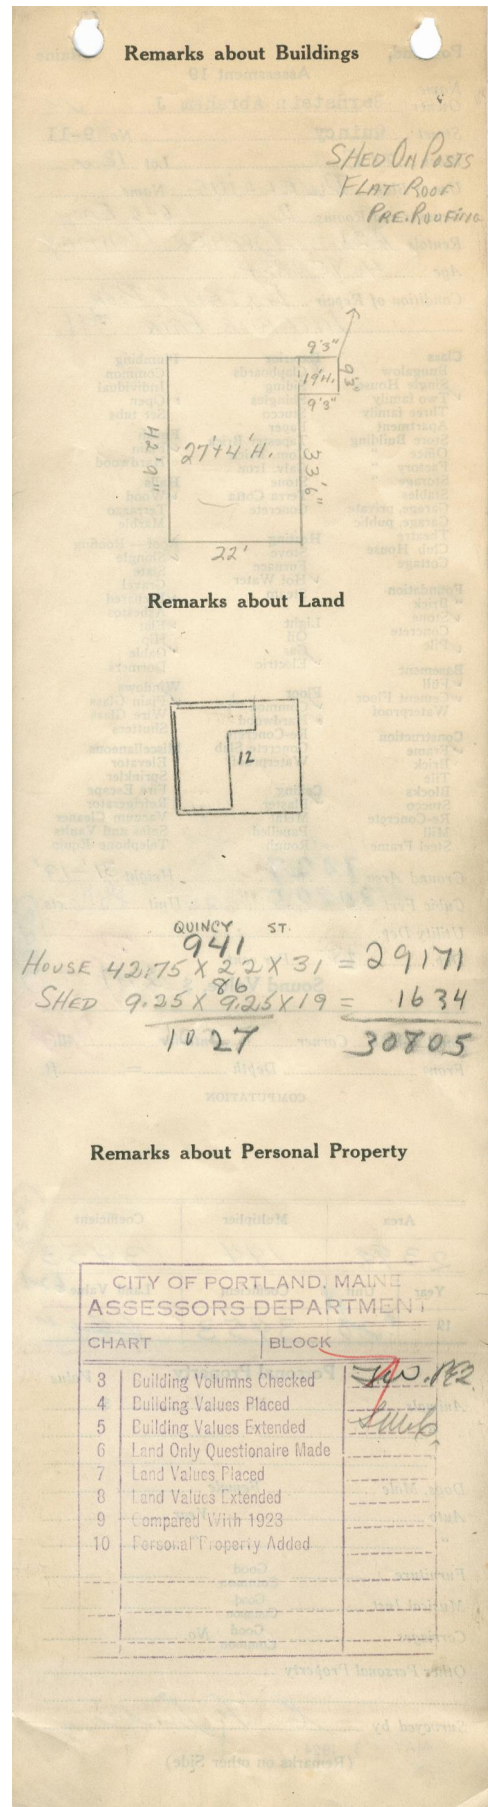 Remarks about Buildings
SHED ON POSTS
FLAT ROOF
PRE. ROOFING
9'3"
19'H.
9'3"
9'3"
42'9"
27'+4'H.
33'6"
22'
Remarks about Land
12
QUINCY ST.
941
HOUSE 42.75 X 22 X 31 = 29171
86
SHED 9.25 X 9.25 X 19 = 1634
1027 30805
Remarks about Personal Property
CITY OF PORTLAND, MAINE
ASSESSORS DEPARTMENT
CHART BLOCK
3 Building Volumns Checked
4 Building Values Placed
5 Building Values Extended
6 Land Only Questionaire Made
7 Land Values Placed
8 Land Values Extended
9 Compared With 1923
10 Personal Property Added